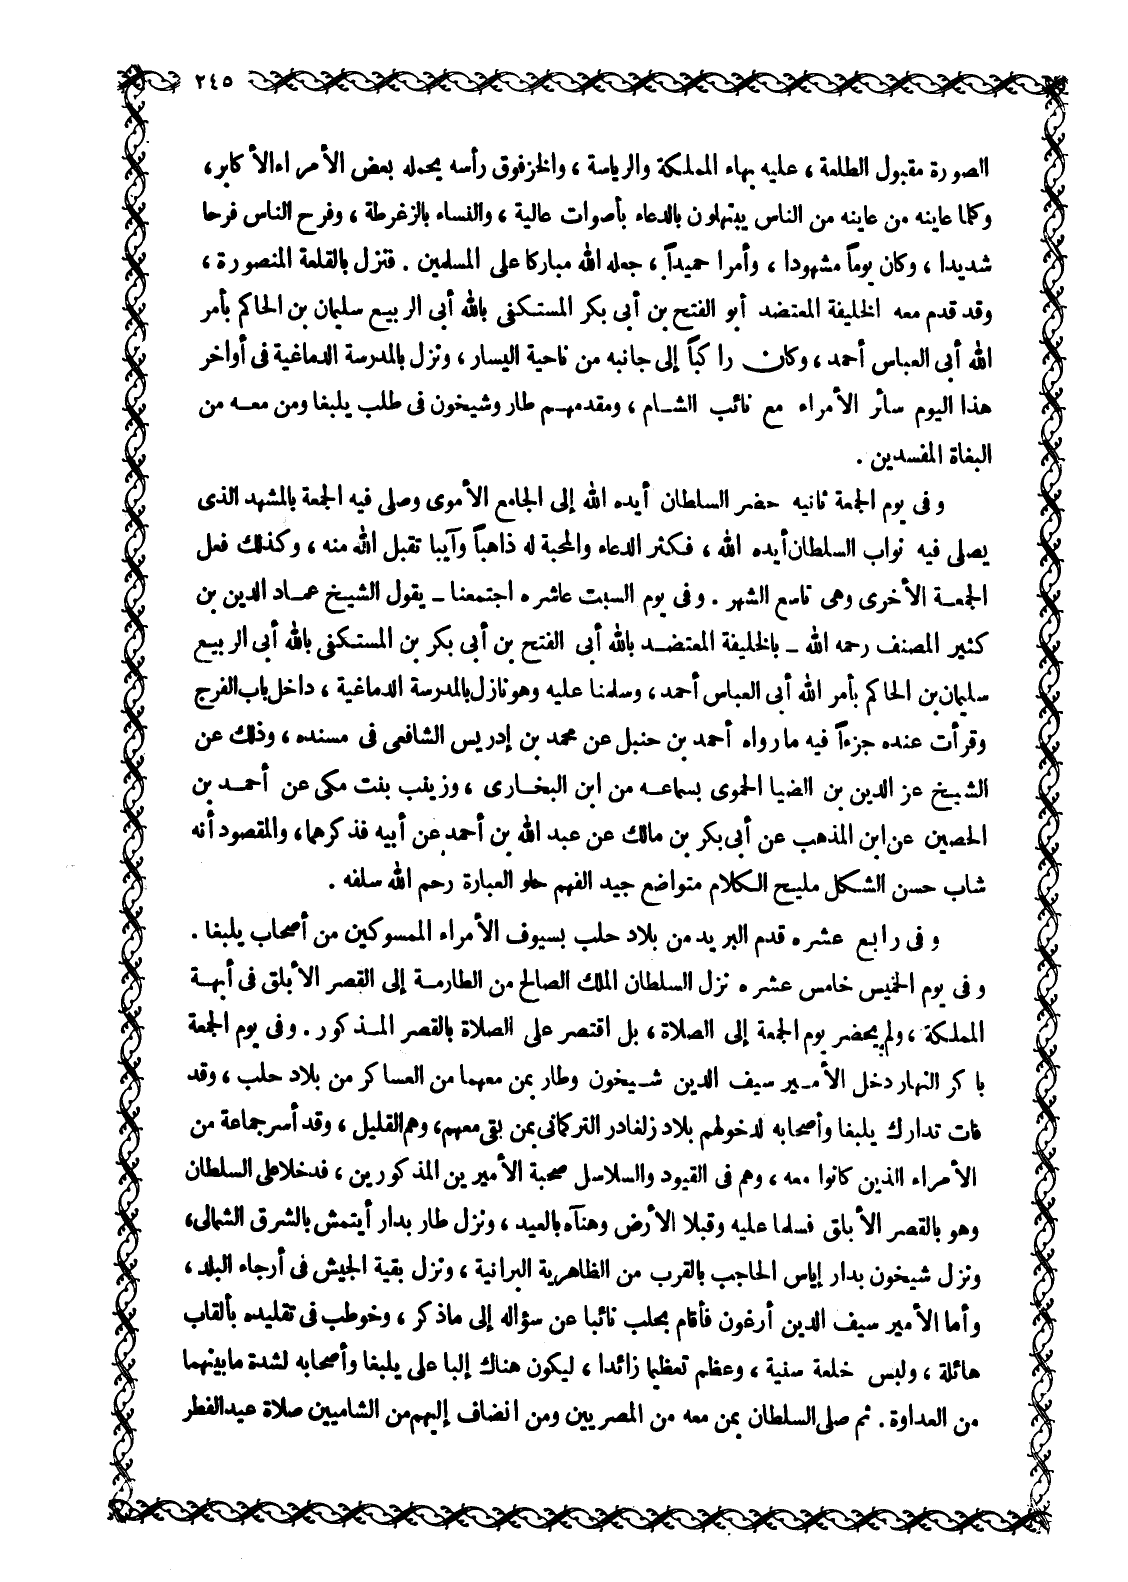 ٢٤٥
الصورة مقبول الطلعة ، عليه بهاء المملكة والرياسة ، والخز فوق رأسه يحمله بعض الأمراء الأكابر ،
وكلما عاينه من عاينه من الناس يبتهلون بالدعاء بأصوات عالية ، والنساء بالزغرطة ، وفرح الناس فرحا
شديدا ، وكان يوماً مشهودا ، وأمرا حميداً ، جعله الله مباركا على المسلمين . فنزل بالقلعة المنصورة ،
وقد قدم معه الخليفة المعتضد أبو الفتح بن أبى بكر المستكفى بالله أبى الربيع سليمان بن الحاكم بأمر
الله أبى العباس أحمد ، وكان راكباً إلى جانبه من ناحية اليسار ، ونزل بالمدرسة الدماغية فى أواخر
هذا اليوم سائر الأمراء مع نائب الشام ، ومقدمهم طار وشيخون فى طلب يلبغا ومن معه من
البغاة المفسدين .
وفى يوم الجمعة ثانيه حضر السلطان أيده الله إلى الجامع الأموى وصلى فيه الجمعة بالمشهد الذى
يصلى فيه نواب السلطان أيده الله ، فكثر الدعاء والمحبة له ذاهباً وآيبا تقبل الله منه ، وكذلك فعل
الجمعة الأخرى وهى تاسع الشهر . وفى يوم السبت عاشره اجتمعنا ـ يقول الشيخ عماد الدين بن
كثير المصنف رحمه الله ـ بالخليفة المعتضد بالله أبى الفتح بن أبى بكر بن المستكفى بالله أبى الربيع
سليمان بن الحاكم بأمر الله أبى العباس أحمد ، وسلمنا عليه وهو نازل بالمدرسة الدماغية ، داخل باب الفرج
وقرأت عنده جزءاً فيه ما رواه أحمد بن حنبل عن محمد بن إدريس الشافعى فى مسنده ، وذلك عن
الشيخ عز الدين بن الضيا الحموى بسماعه من ابن البخارى ، وزينب بنت مكى عن أحمد بن
الحصين عن ابن المذهب عن أبى بكر بن مالك عن عبد الله بن أحمد عن أبيه فذكرهما ، والمقصود أنه
شاب حسن الشكل مليح الكلام متواضع جيد الفهم حلو العبارة رحم الله سلفه .
وفى رابع عشره قدم البريد من بلاد حلب بسيوف الأمراء الممسوكين من أصحاب يلبغا .
وفى يوم الخميس خامس عشره نزل السلطان الملك الصالح من الطارمة إلى القصر الأبلق فى أبهة
المملكة ، ولم يحضر يوم الجمعة إلى الصلاة ، بل اقتصر على الصلاة بالقصر المذكور . وفى يوم الجمعة
باكر النهار دخل الأمير سيف الدين شيخون وطار بمن معهما من العساكر من بلاد حلب ، وقد
فات تدارك يلبغا وأصحابه لدخولهم بلاد زلغادر التركمانى بمن بقى معهم ، وهم القليل ، وقد أسر جماعة من
الأمراء الذين كانوا معه ، وهم فى القيود والسلاسل صحبة الأميرين المذكورين ، فدخلا على السلطان
وهو بالقصر الأبلق فسلما عليه وقبلا الأرض وهنآه بالعيد ، ونزل طار بدار أيتمش بالشرق الشمالى ،
ونزل شيخون بدار إياس الحاجب بالقرب من الظاهرية البرانية ، ونزل بقية الجيش فى أرجاء البلد ،
وأما الأمير سيف الدين أرغون فأقام بحلب نائبا عن سؤاله إلى ما ذكر ، وخوطب فى تقليده بألقاب
هائلة ، ولبس خلعة سنية ، وعظم تعظيما زائدا ، ليكون هناك إلبا على يلبغا وأصحابه لشدة ما بينهما
من العداوة . ثم صلى السلطان بمن معه من المصريين ومن انضاف إليهم من الشاميين صلاة عيد الفطر